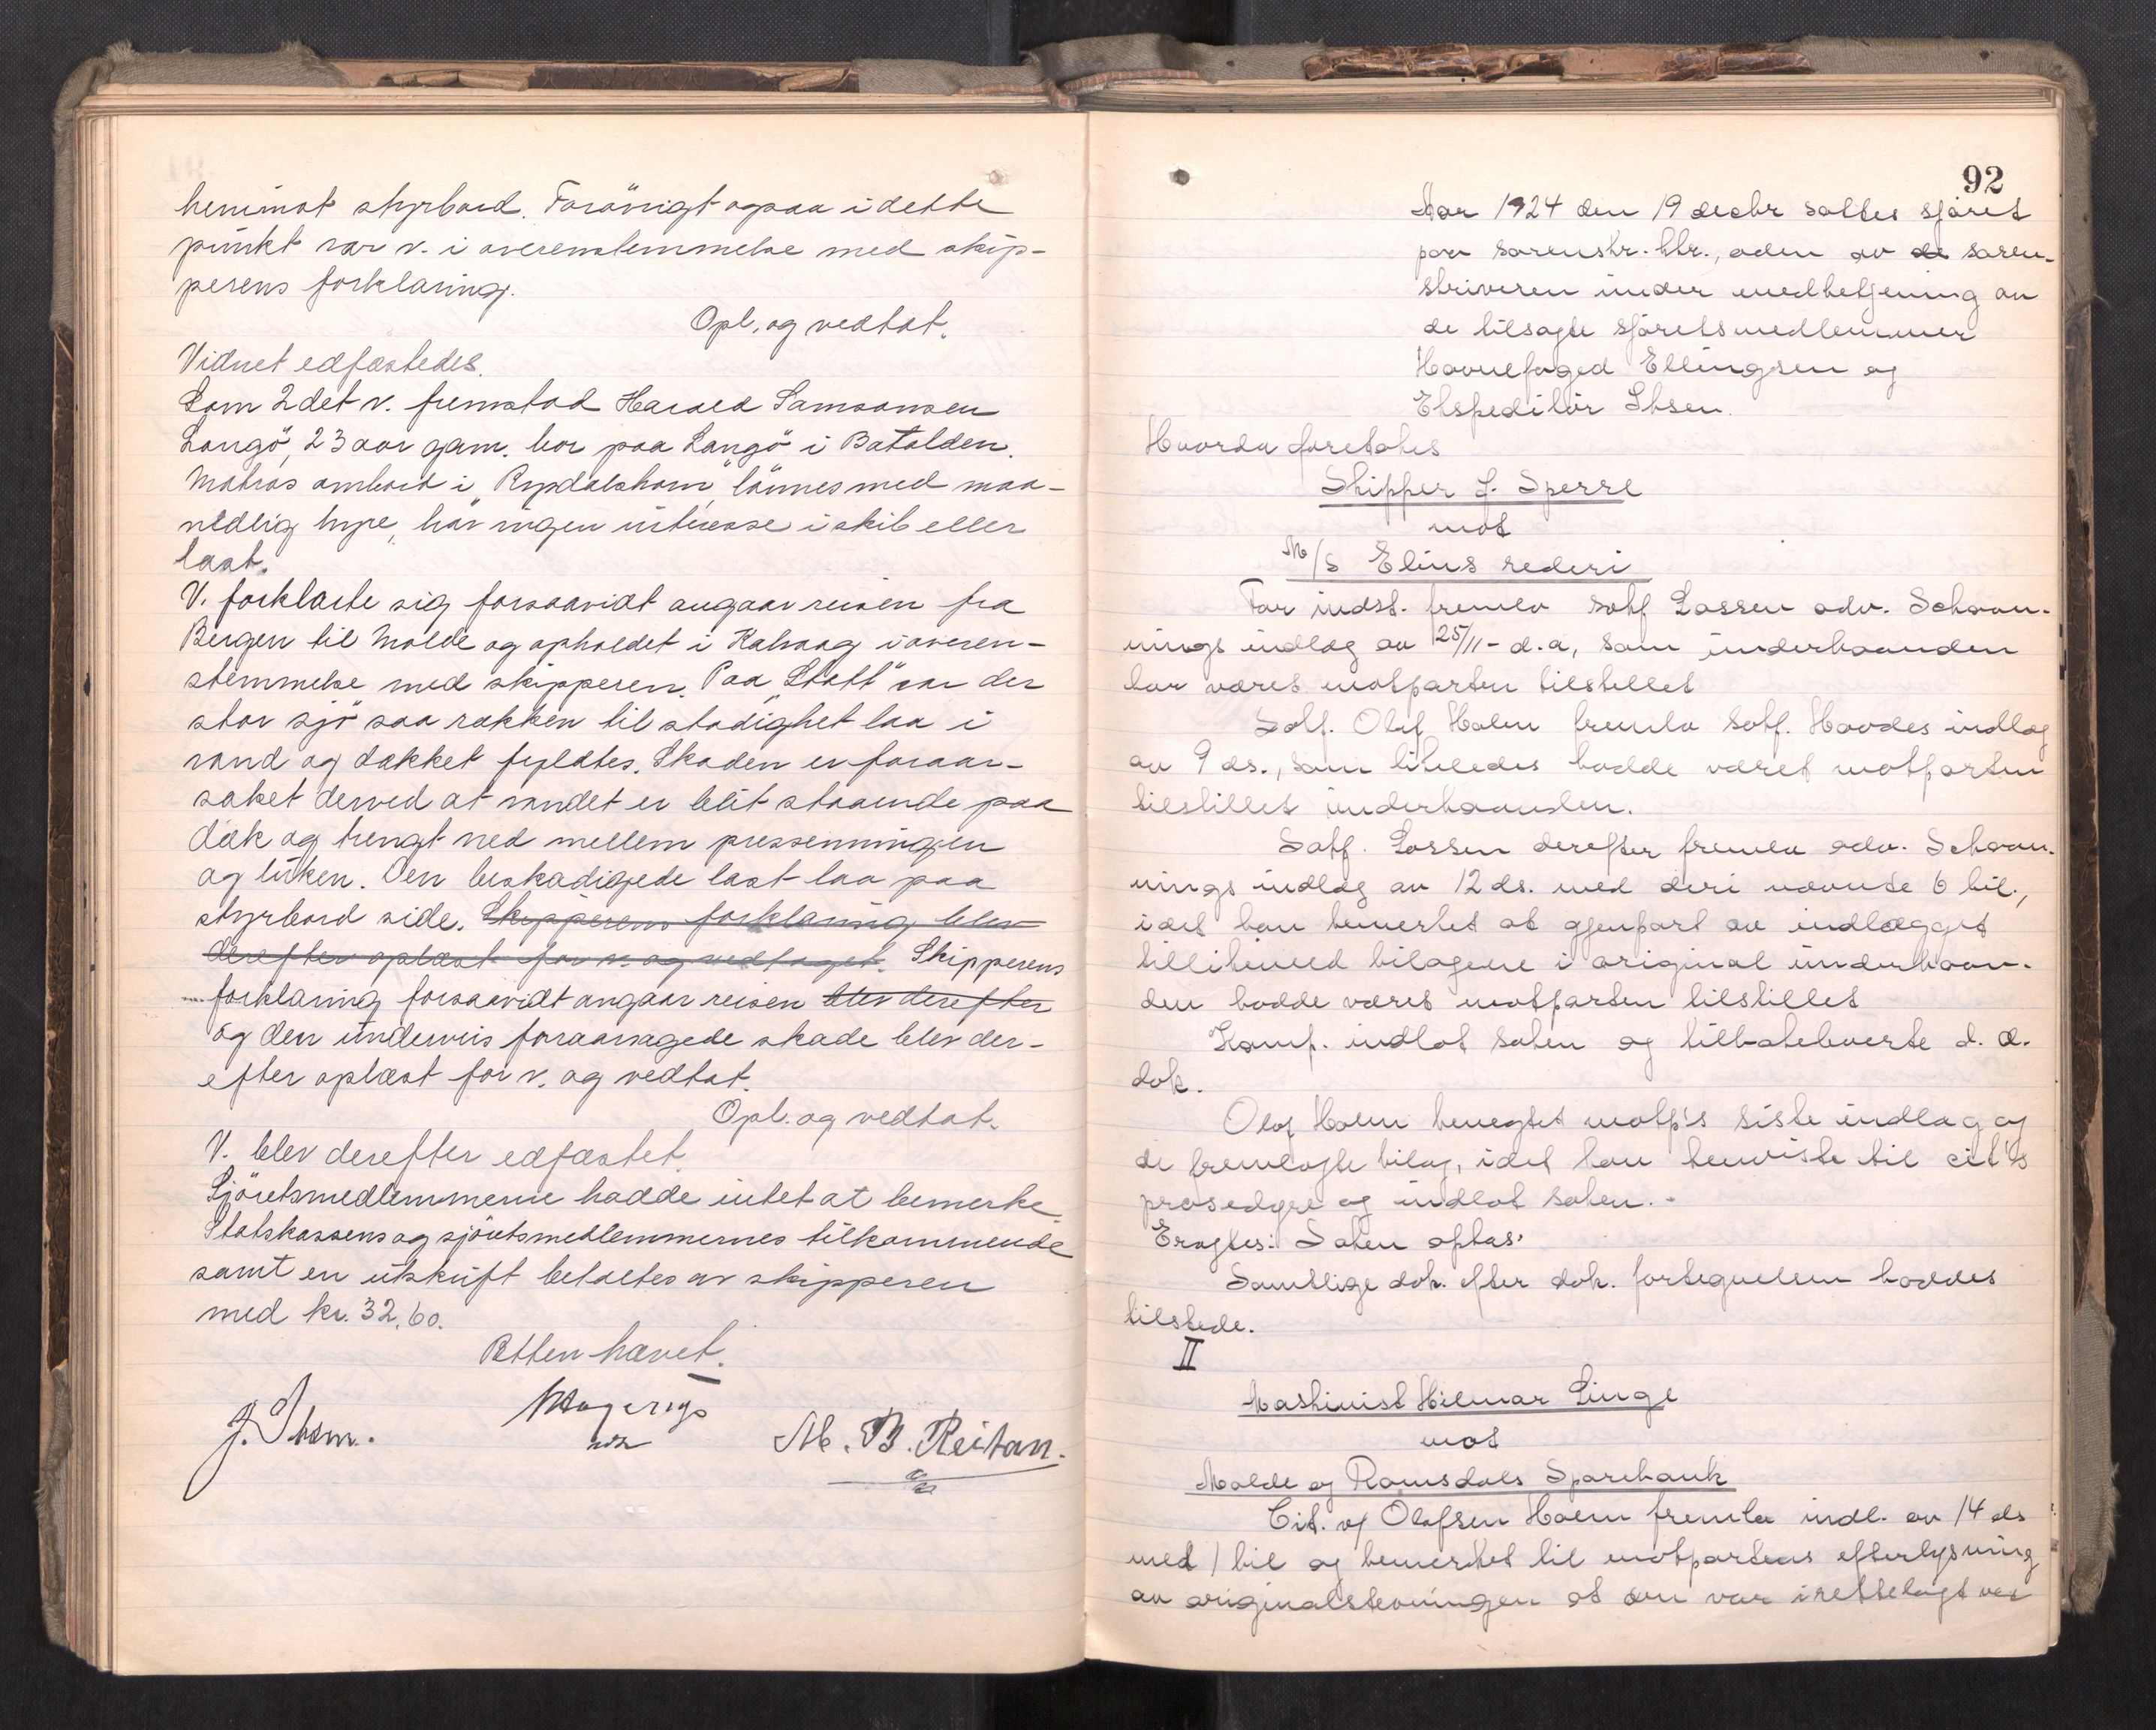 heninot styrbord. Forövrigt ogsaa i dette
punkt var v. i overenstemmelse med skip-
perens forklaring.
Opl. og vedtat.
Vidnet edfæstedes.
Som 2det v. fremstod Harald Samsonsen
Langö, 23 aar gam. bor paa Langö i Batalden.
Matros ombord i "Rypdalsham" lönnes med maa-
nedlig hyre, har ingen interesse i skib eller
last.
V. forklarte sig forsaavidt angaar reisen fra
Bergen til Molde og opholdet i Kalvaag i overen-
stemmelse med skipperen. Paa "Statt" var der
stor sjö saa rækken til stadighet laa i
vand og dækket fyldtes. Skaden er foraar-
saket derved at vandet er blit staaende paa
dæk og trengt ned mellem pressenningen
og luken. Den beskadigede last laa paa
styrbord side. Skipperens forklaring blev
derefter oplæst for v. og vedtaget. Skipperens
forklaring forsaavidt angaar reisen blev derefter
og den underveis foraarsagede skade blev der-
efter oplæst for v. og vedtat.
Opl. og vedtat.
V. blev derefter edfæstet.
Sjöretsmedlemmerne hadde intet at bemerke.
Statskassens og sjöretsmedlemmernes tilkommende
samt en utskrift betaltes av skipperen
med kr. 32.60.
Retten hævet.
M. B. Reitan.
92
Aar 1924 den 19 decbr sattes sjöret
paa sorenskr. ktr., aden av de soren-
skriveren under medbetjening av
de tilsagte sjöretsmedlemmer
Havnefoged Ellingsen og
Ekspeditör Ibsen.
Hvorda foretokes
Skipper J. Sperre
mot
M/S Elins rederi
For indst. fremla sakf Lossen adv. Schaan-
nings indlæg av 25/11 - d.a, som underhaanden
har været motparten tilstillet
Sakf. Olaf Holm fremla Sakf. Hovdes indlæg
av 9 ds., som likeledes hadde været motparten
tilstillet underhaanden.
Sakf. Lossen derefter fremla adv. Schaan-
nings indlæg av 12 ds. med deri nævnte 6 bil.,
idet han bemerket at gjenpart av indlægget
tillikemed bilagene i original underhaan-
den hadde været motparten tilstillet
Komp. indlot saken og tilbakeleverte d. a.
dok.
Olaf Holm benegtet motp's siste indlæg og
de fremlagte bilag, idet han henviste til cit's
prosedyre og indlot saken. -
Eragtes: Saken optas.
Samtlige dok. efter dok. fortegnelsen haddes
tilstede.
II
Maskinist Hilmar Linge
mot
Molde og Romsdals Sparebank
Cit. v/ Olafsen Holm fremla indl. av 14 ds
med 1 bil og bemerket til motpartens efterlysning
av originalstevningen at den var irettelagt ved